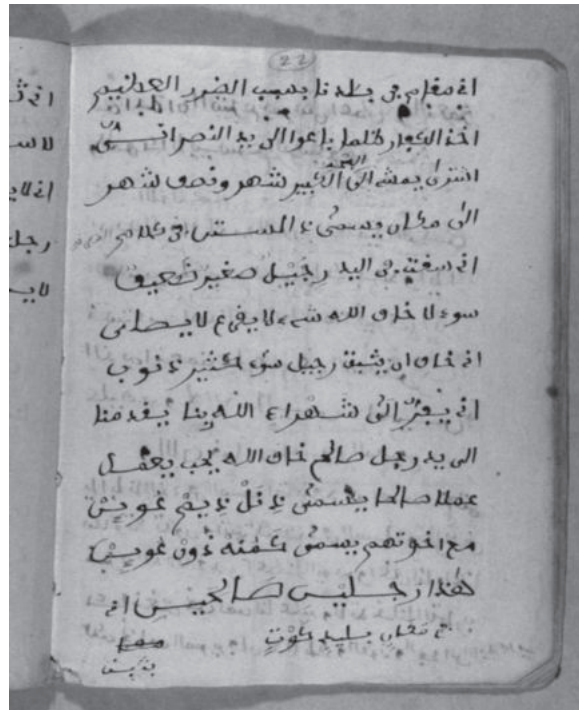 22
اني مقام في بلدنا بسبب الضرر العظيم
اخذ الكفار ظلما باعوا الى يد النصراني
اشترى يمشي الى البحر الكبير شهر ونصف شهر
الى مكان ويسمى ذ المستس في كلام
اني سقت في اليد رجيل صغير ضعيف
سوء لا خاف الله شيء لا يقرء لا يصلى
اني خاف ان رجيل سوء كثير ذنوب
اني يفر الى شهراء الله بنا يقدمنا
الى يد رجل صالح خاف الله يحب يفعل
عملا صالحا يسمى ذِ نَلْ ذِيمْ عُوِينْ
مع اخوتهم يسمى كمنه ذُونْ عُوِينْ
هذا رجلين صالحين اني
في مكان بليد كوت